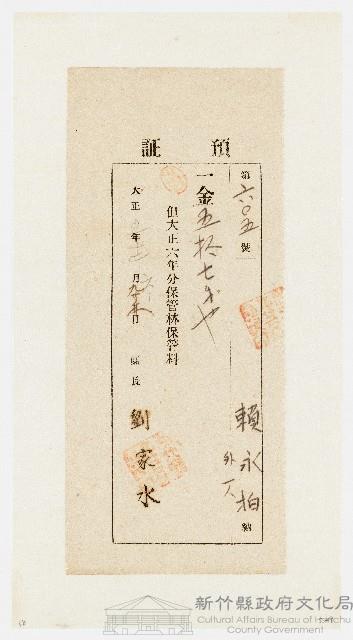 預証
第六〇五號
賴永柏
外一人
納
一金五拾七戔也
但大正六年分保管林保管料
大正 年 月 日
區長
劉家水
新竹縣政府文化局
Cultural Affairs Bureau of Hsinchu
County Government